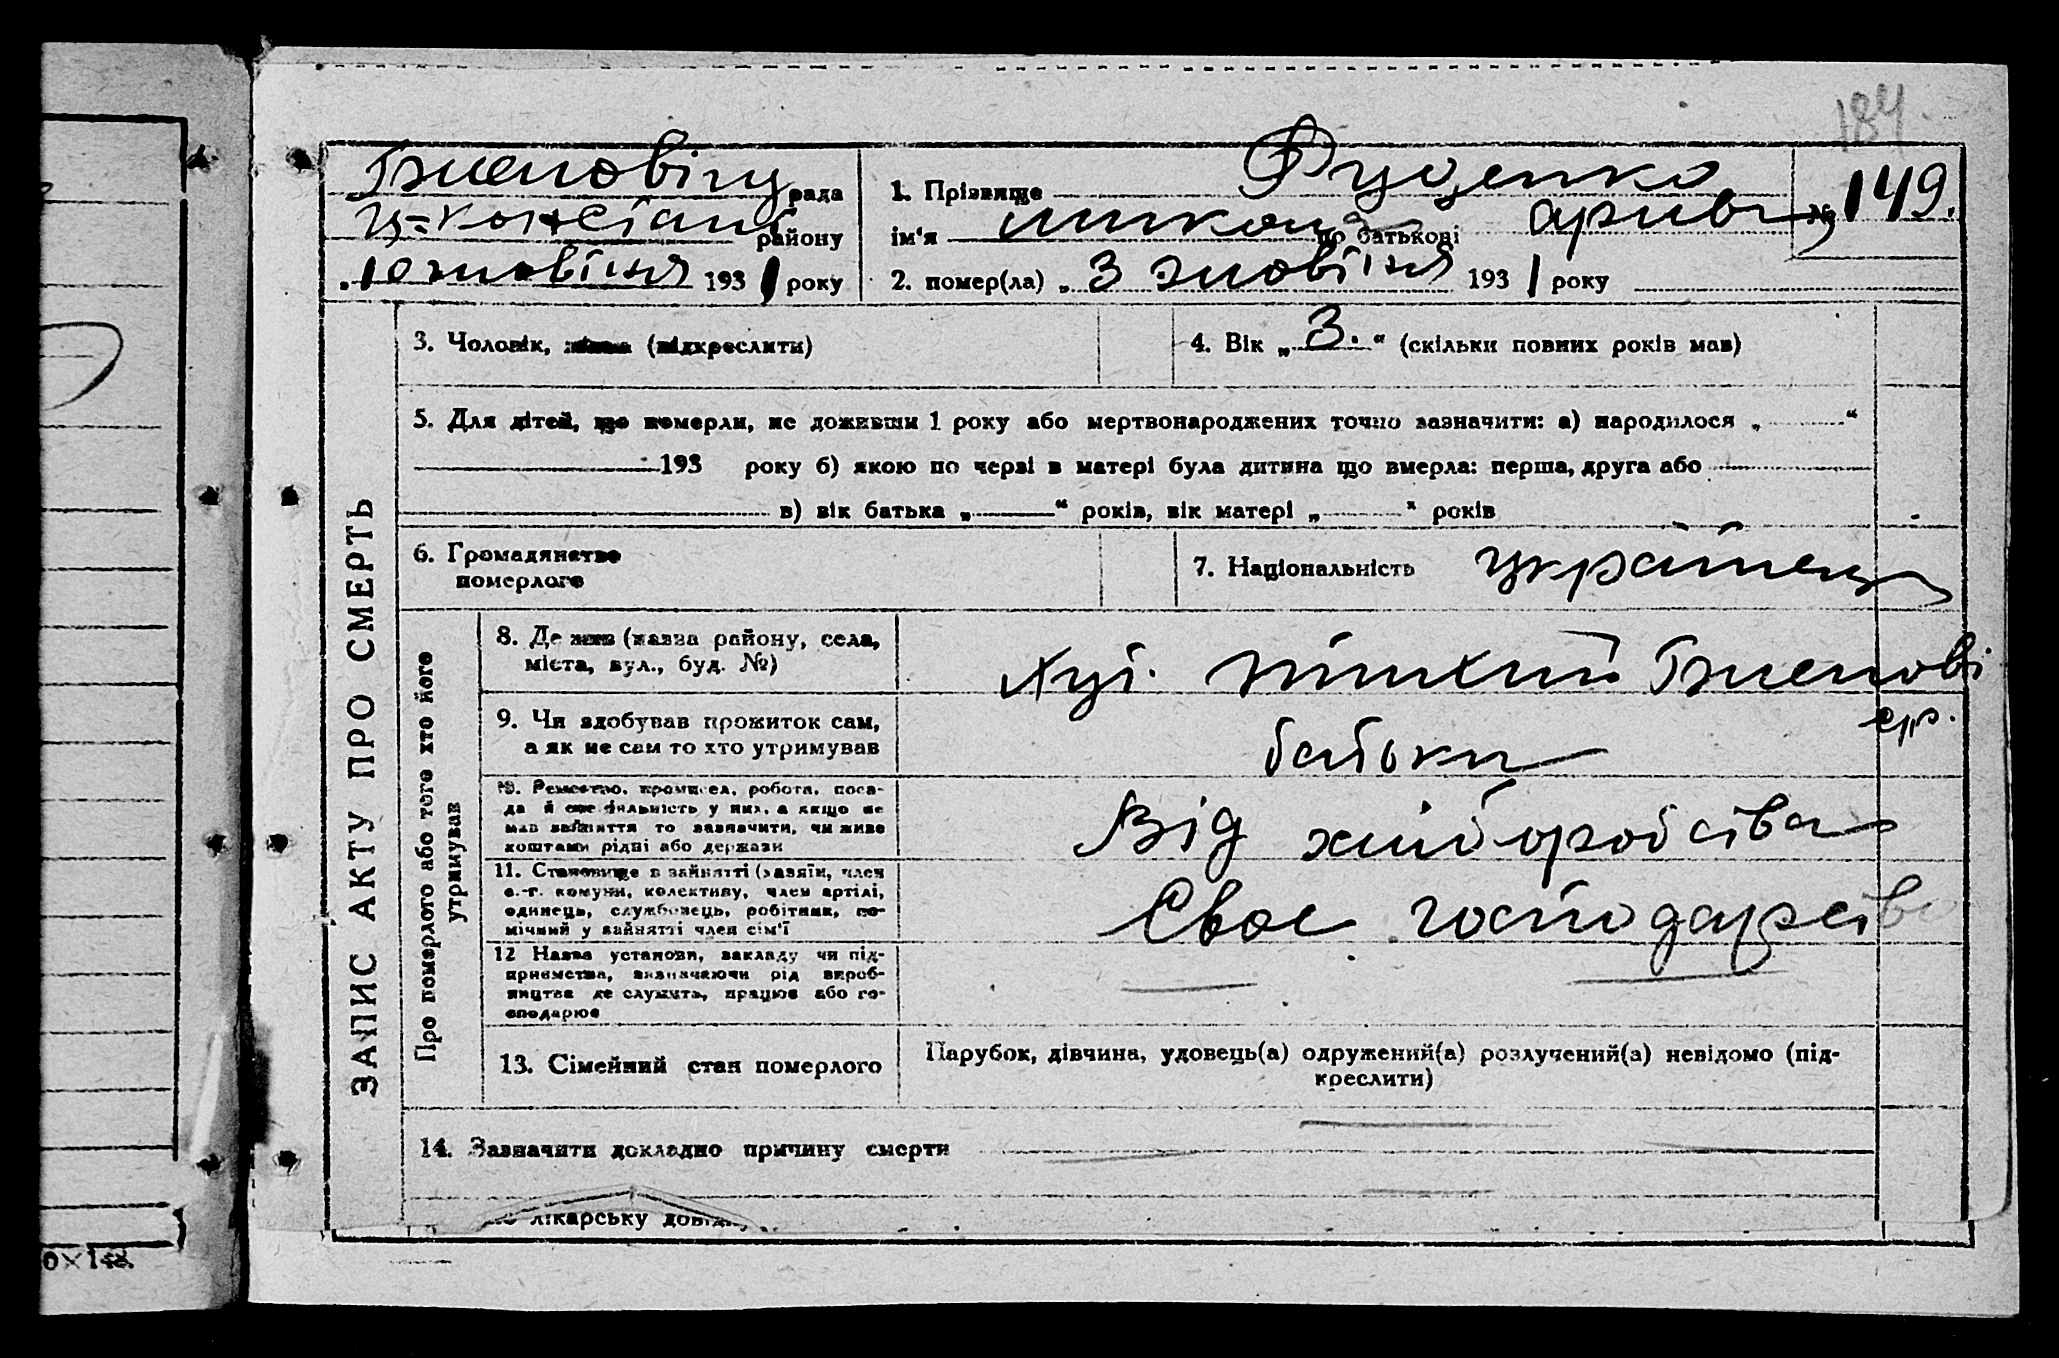 184
рада
1. Прізвище Руденко
149.
району
ім'я Микола по батькові
10 жовтня 1931 року
2. помер(ла) „ 3 жовтня 1931 року
ЗАПИС АКТУ ПРО СМЕРТЬ
3. Чоловік, (підкреслити)
4. Вік „ 3. “ (скільки повних років мав)
5. Для дітей, що померли, не доживши 1 року або мертвонароджених точно зазначити: а) народилося „ “
193 року б) якою по черзі в матері була дитина що вмерла: перша, друга або
в) вік батька „ “ років, вік матері „ “ років
6. Громадянство
померлого
7. Національність українец
Про померлого або того хто його
утримував
8. Де жив (назва району, села,
міста, вул., буд. №)
Хут.
9. Чи здобував прожиток сам,
а як не сам то хто утримував
батьки
10. Ремество, промисел, робота, поса-
да й спеціяльність у них, а якщо не
мав заняття то зазначити, чи живе
коштами рідні або держави
Від хліборобства
11. Становище в занятті (хазяїн, член
с.-г. комуни, колективу, член артілі,
одинець, службовець, робітник, по-
мічний у занятті член сім'ї
Своє господарство
12 Назва установи, закладу чи під-
приємства, визначаючи рід вироб-
ництва де служить, працює або го-
сподарює
13. Сімейний стан померлого
Парубок, дівчина, удовець(а) одружений(а) розлучений(а) невідомо (під-
креслити)
14. Зазначити докладно причину смерти
лікарську довідку
0×148.